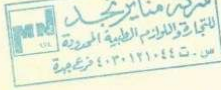 شركة منابر نجد
للتجارة واللوازم الطبية المحدودة
س.ت ٤٠٣٠١٢١٠٤٤ فرع جدة
MN